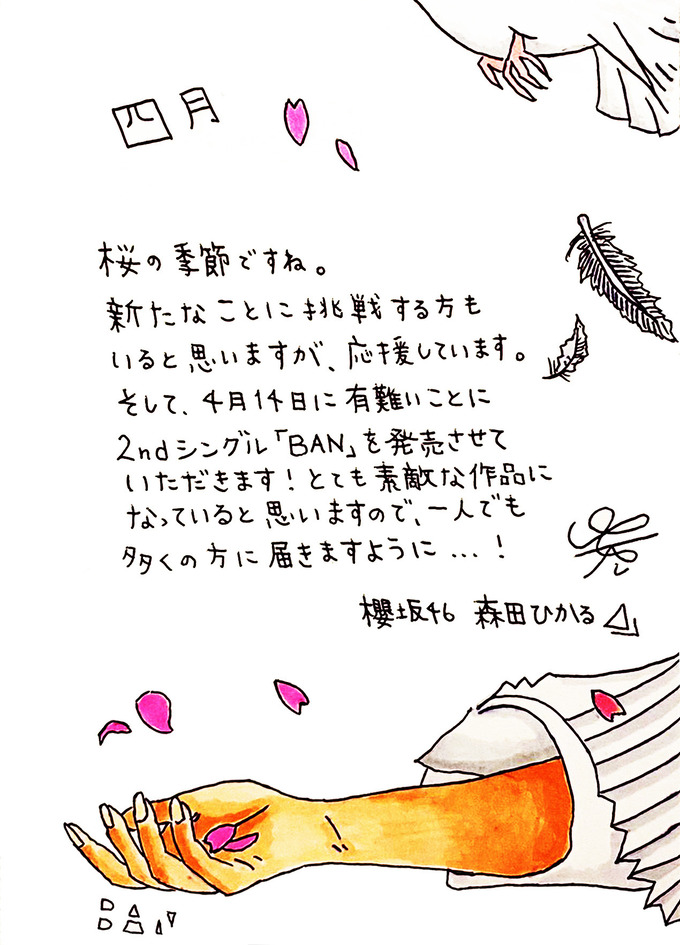 四月
桜の季節ですね。
新たなことに挑戦する方も
いると思いますが、応援しています。
そして、4月14日に有難いことに
2ndシングル「BAN」を発売させて
いただきます！とても素敵な作品に
なっていると思いますので、一人でも
多くの方に届きますように...！
櫻坂46 森田ひかる
BAN